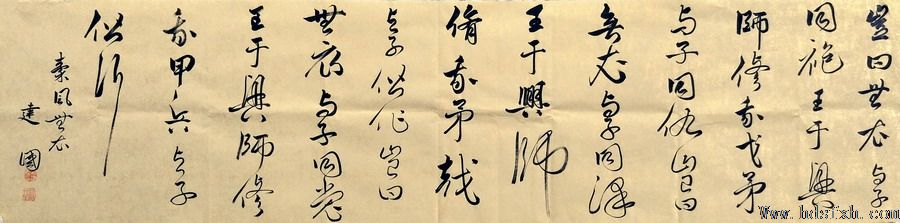 豈曰無衣與子
同袍王于興
師修我戈矛
與子同仇豈曰
無衣與子同澤
王于興師
脩我矛戟
與子偕作豈曰
無衣與子同裳
王于興師修
我甲兵與子
偕行
秦風無衣
建國